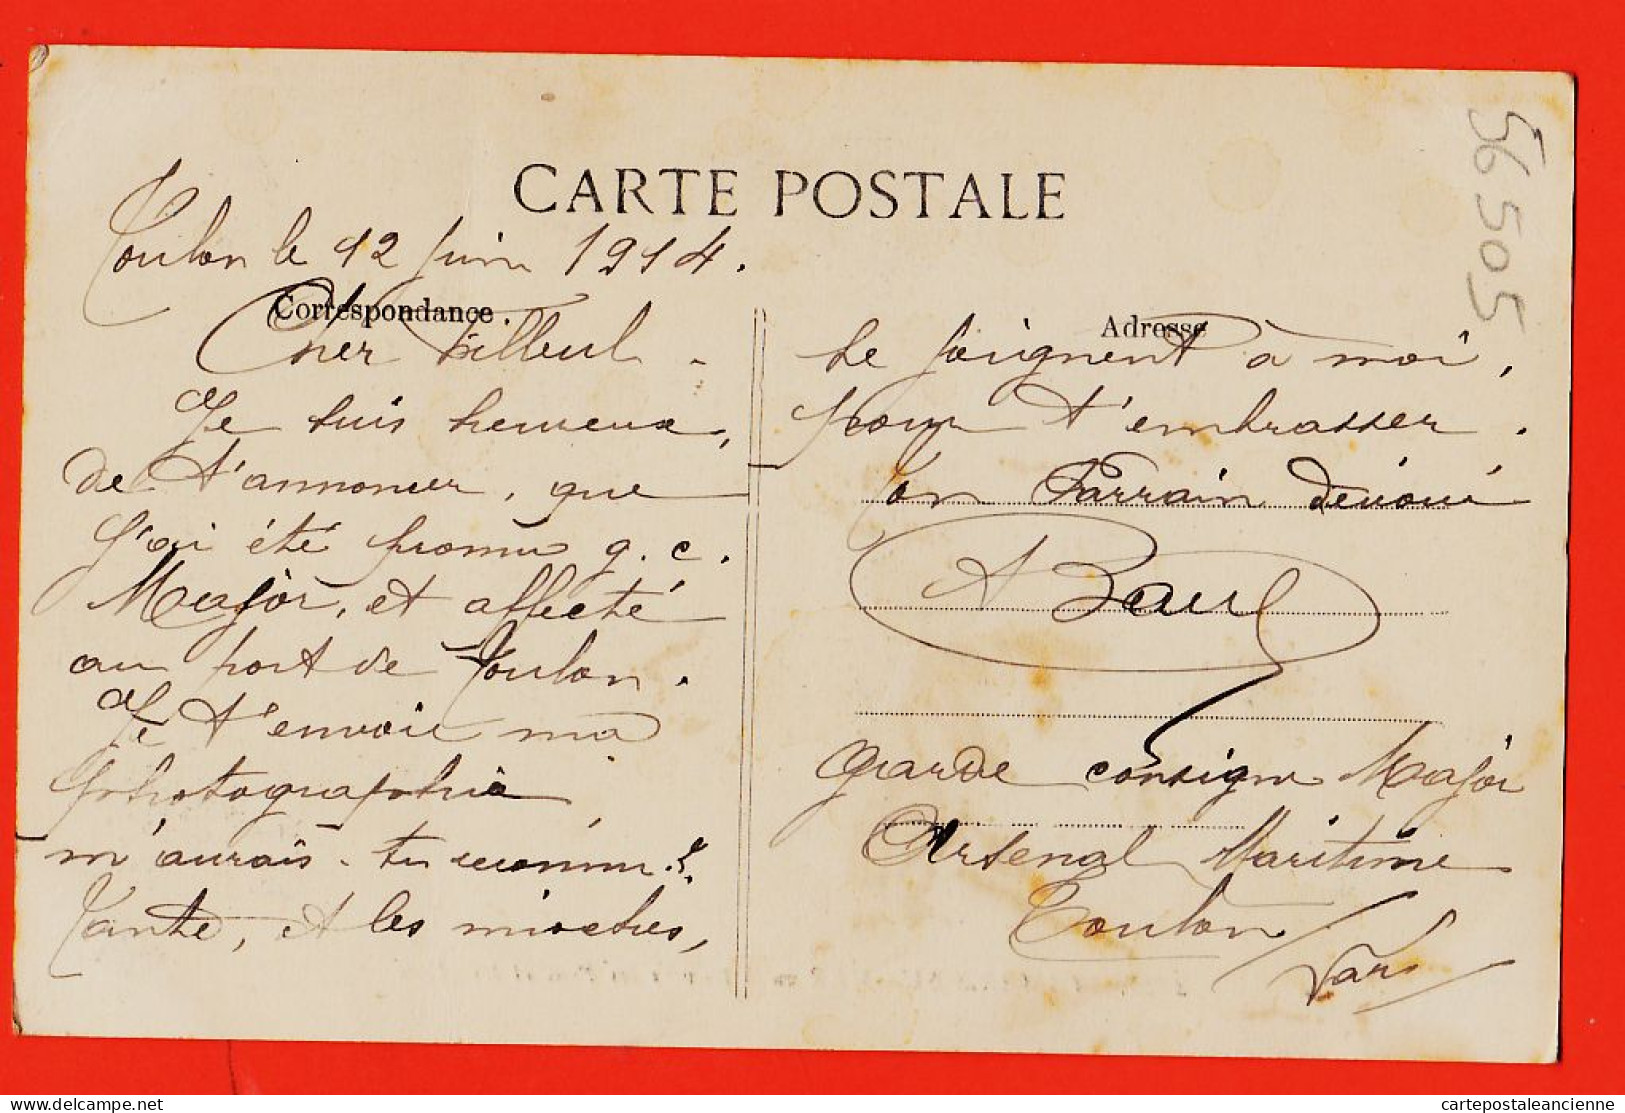 CARTE POSTALE
Toulon le 12 Juin 1914.
Correspondance.
Cher Filleul -
Je suis heureux,
de t'annoncer, que
J'ai été promu g. c.
Major, et affecté
au port de Toulon.
Je t'envoie ma
photographie
m'aurais-tu reconnu?
Tante, et les mioches,
Adresse
se joignent à moi,
pour t'embrasser.
Ton Parrain dévoué
A Baul
garde consigne Major
Arsenal Maritime
Toulon
Var
56505
cartepostaleancienne
delcampe.net